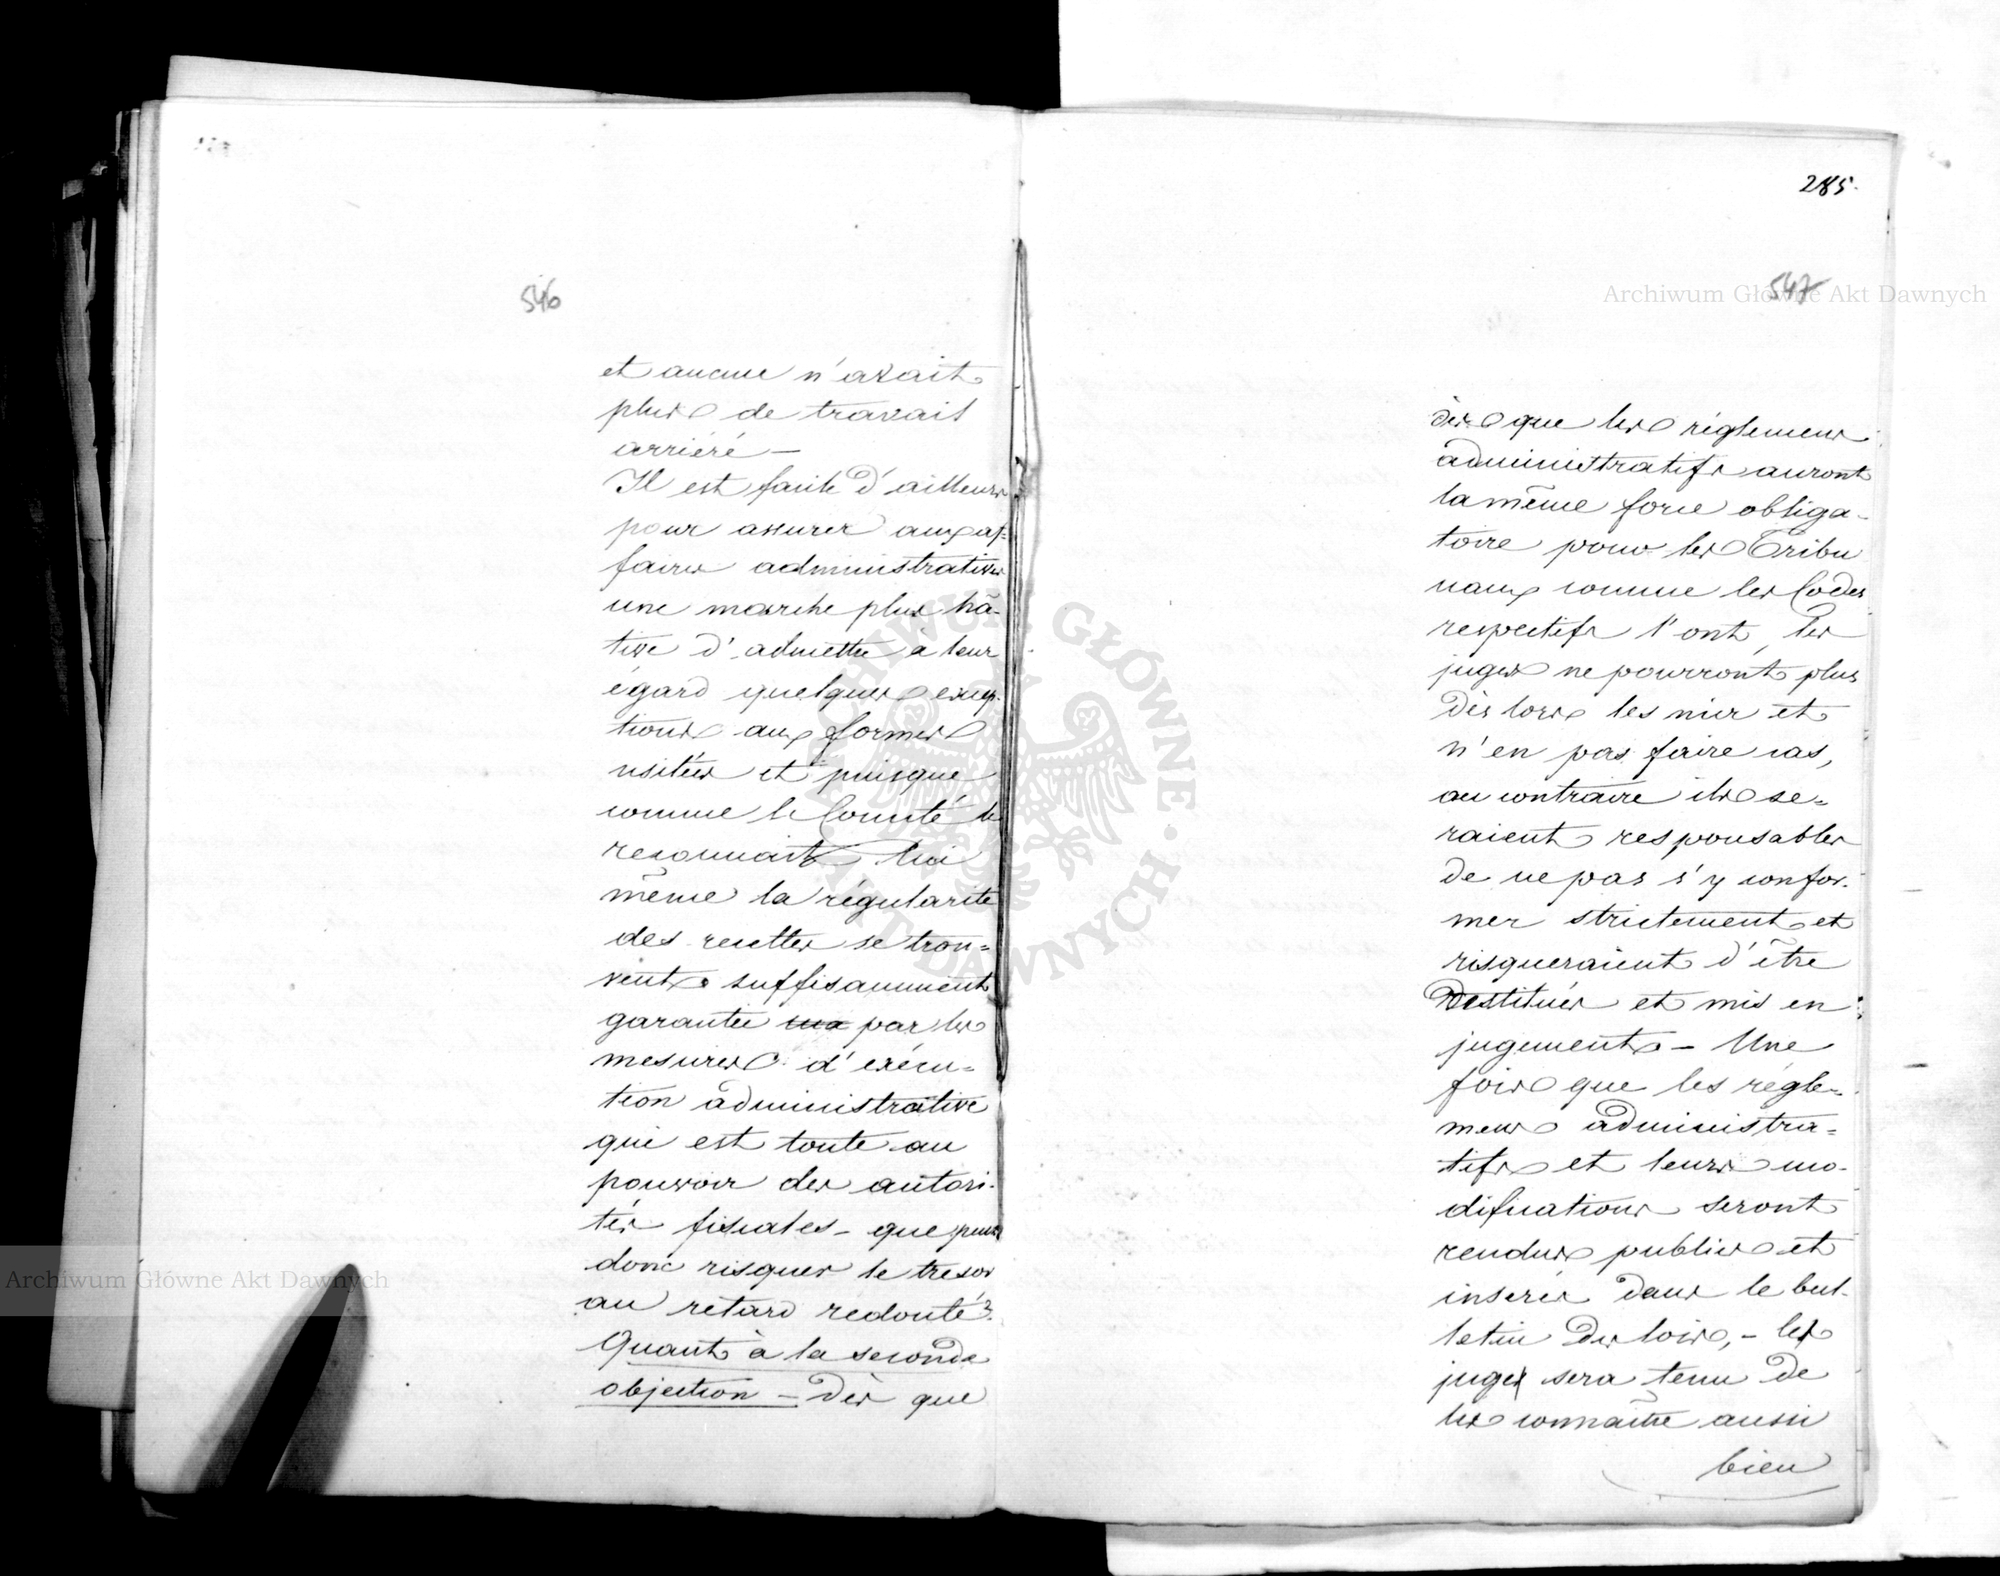 546
et aucune n'avait
plus de travail
arriéré —
Il est facile d'ailleurs
pour assurer aux af-
faires administratives
une marche plus hâ-
tive d'admettre à leur
égard quelques excep-
tions aux formes
usitées et puisque
comme le Comité le
reconnait lui
même la régularité
des recettes se trou=
vent suffisamment
garantie par les
mesures d'exécu=
tion administrative
qui est toute au
pouvoir des autori-
tés fiscales — que peut
donc risquer le trésor
au retard redouté?
Quant à la seconde
objection — Dès que
285.
547
dès que les réglemens
administratifs auront
la même force obliga-
toire pour les Tribu
naux comme les Codes
respectifs l'ont, les
juges ne pourront plus
dès lors les nier et
n'en pas faire cas,
au contraire ils se=
raient responsables
de ne pas s'y confor-
mer strictement et
risqueraient d'être
destitués et mis en
jugement — Une
fois que les régle=
mens administra=
tifs et leurs mo-
difications seront
rendus publics et
inserés dans le bul-
letin des lois, — le
juge sera tenu de
les connaître aussi
bien
Archiwum Główne Akt Dawnych
Archiwum Główne Akt Dawnych
ARCHIWUM GŁÓWNE · AKT DAWNYCH ·